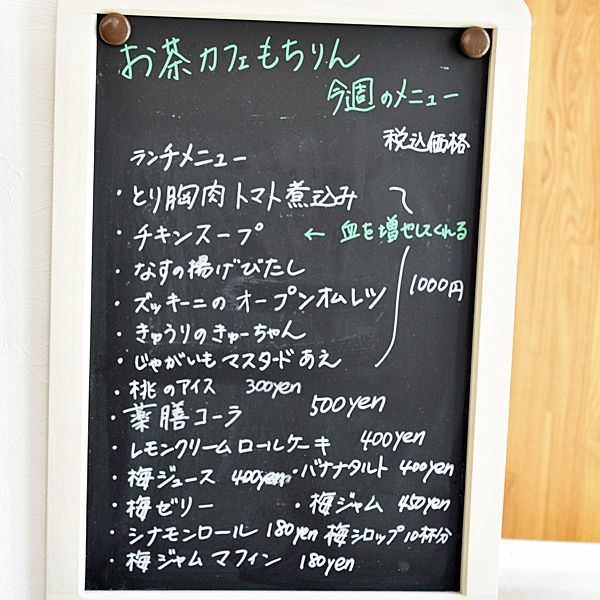 お茶カフェもちりん
今週のメニュー
税込価格
ランチメニュー
・とり胸肉トマト煮込み
・チキンスープ ← 血を増やしてくれる
・なすの揚げびたし
・ズッキーニのオープンオムレツ 1000円
・きゅうりのきゅーちゃん
・じゃがいもマスタードあえ
・桃のアイス 300yen
・薬膳コーラ 500yen
・レモンクリームロールケーキ 400yen
・梅ジュース 400yen ・バナナタルト 400yen
・梅ゼリー ・梅ジャム 450yen
・シナモンロール 180yen 梅シロップ10杯分
・梅ジャムマフィン 180yen